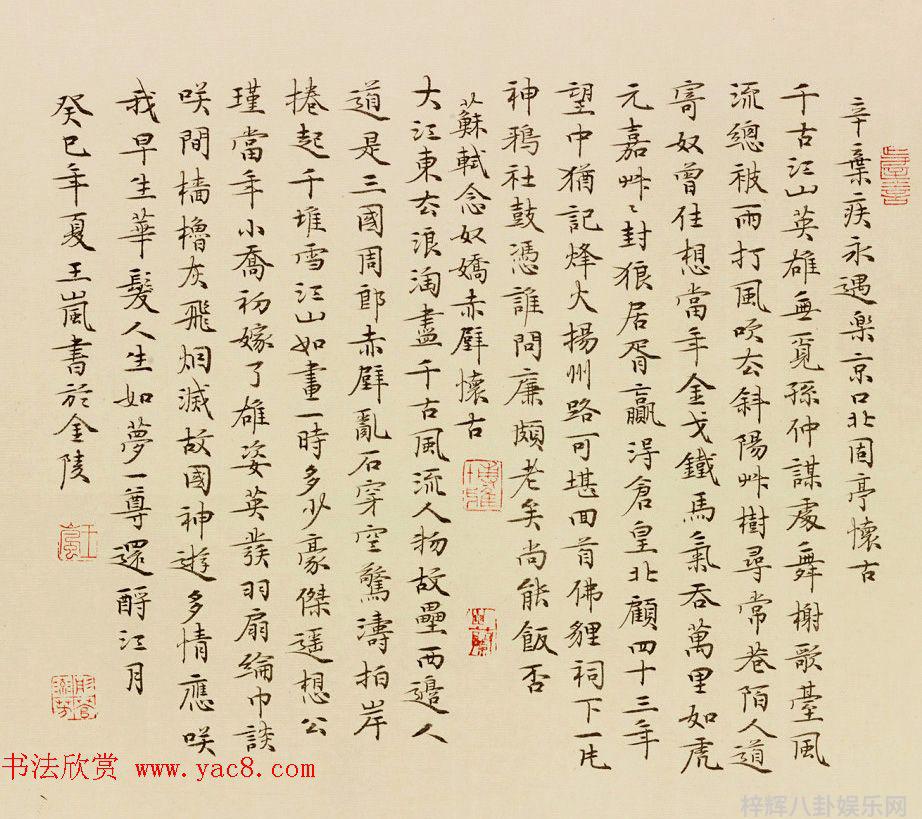 辛棄疾永遇樂京口北固亭懷古
千古江山英雄無覓孫仲謀處舞榭歌臺風
流總被雨打風吹去斜陽艸樹尋常巷陌人道
寄奴曾住想當年金戈鐵馬氣吞萬里如虎
元嘉艸〻封狼居胥贏得倉皇北顧四十三年
望中猶記烽火揚州路可堪回首佛貍祠下一片
神鴉社鼓憑誰問廉頗老矣尚能飯否
蘇軾念奴嬌赤壁懷古
大江東去浪淘盡千古風流人物故壘西邊人
道是三國周郎赤壁亂石穿空驚濤拍岸
捲起千堆雪江山如畫一時多少豪傑遥想公
瑾當年小喬初嫁了雄姿英發羽扇綸巾談
咲間檣櫓灰飛烟滅故國神遊多情應咲
我早生華髮人生如夢一尊還酹江月
癸巳年夏王嵐書於金陵
书法欣赏 www.yac8.com
梓辉八卦娱乐网